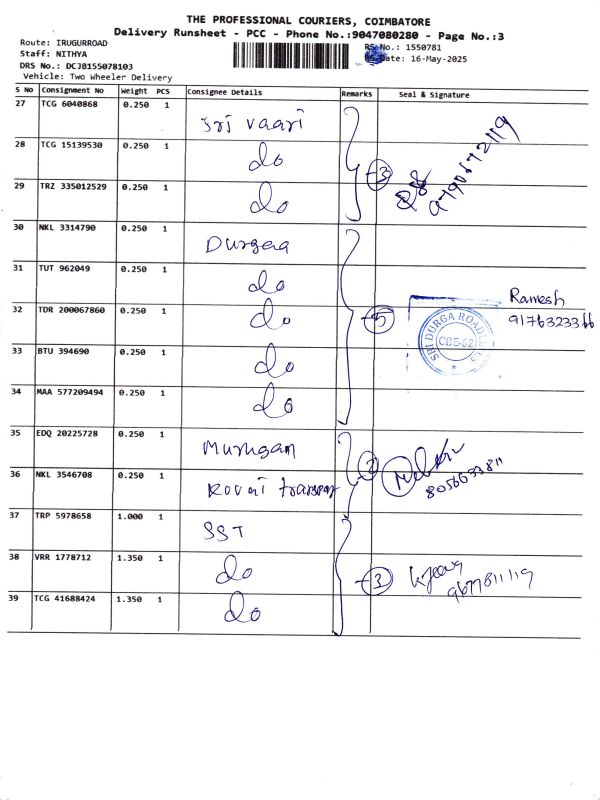 THE PROFESSIONAL COURIERS, COIMBATORE
Delivery Runsheet - PCC - Phone No.:9047080280 - Page No.:3
Route: IRUGURROAD
Staff: NITHYA
DRS No.: DCJB155078103
Vehicle: Two Wheeler Delivery
RS No.: 1550781
Date: 16-May-2025
S No Consignment No Weight PCS Consignee Details Remarks Seal & Signature
27 TCG 6040868 0.250 1 Sri vaari
28 TCG 15139530 0.250 1 do 3
29 TRZ 335012529 0.250 1 do
30 NKL 3314790 0.250 1 Durgaa
31 TUT 962049 0.250 1 do
32 TDR 200067860 0.250 1 do 5 Ramesh
SRI DURGA ROAD CBE-62
33 BTU 394690 0.250 1 do
34 MAA 577209494 0.250 1 do
35 EDQ 20225728 0.250 1 Murugan 2
8056633811
36 NKL 3546708 0.250 1 transport
37 TRP 5978658 1.000 1 SST
38 VRR 1778712 1.350 1 do 3
9677811119
39 TCG 41688424 1.350 1 do